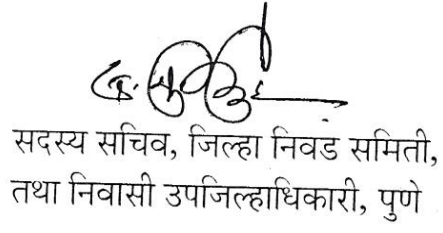 सदस्य सचिव, जिल्हा निवड समिती,
तथा निवासी उपजिल्हाधिकारी, पुणे